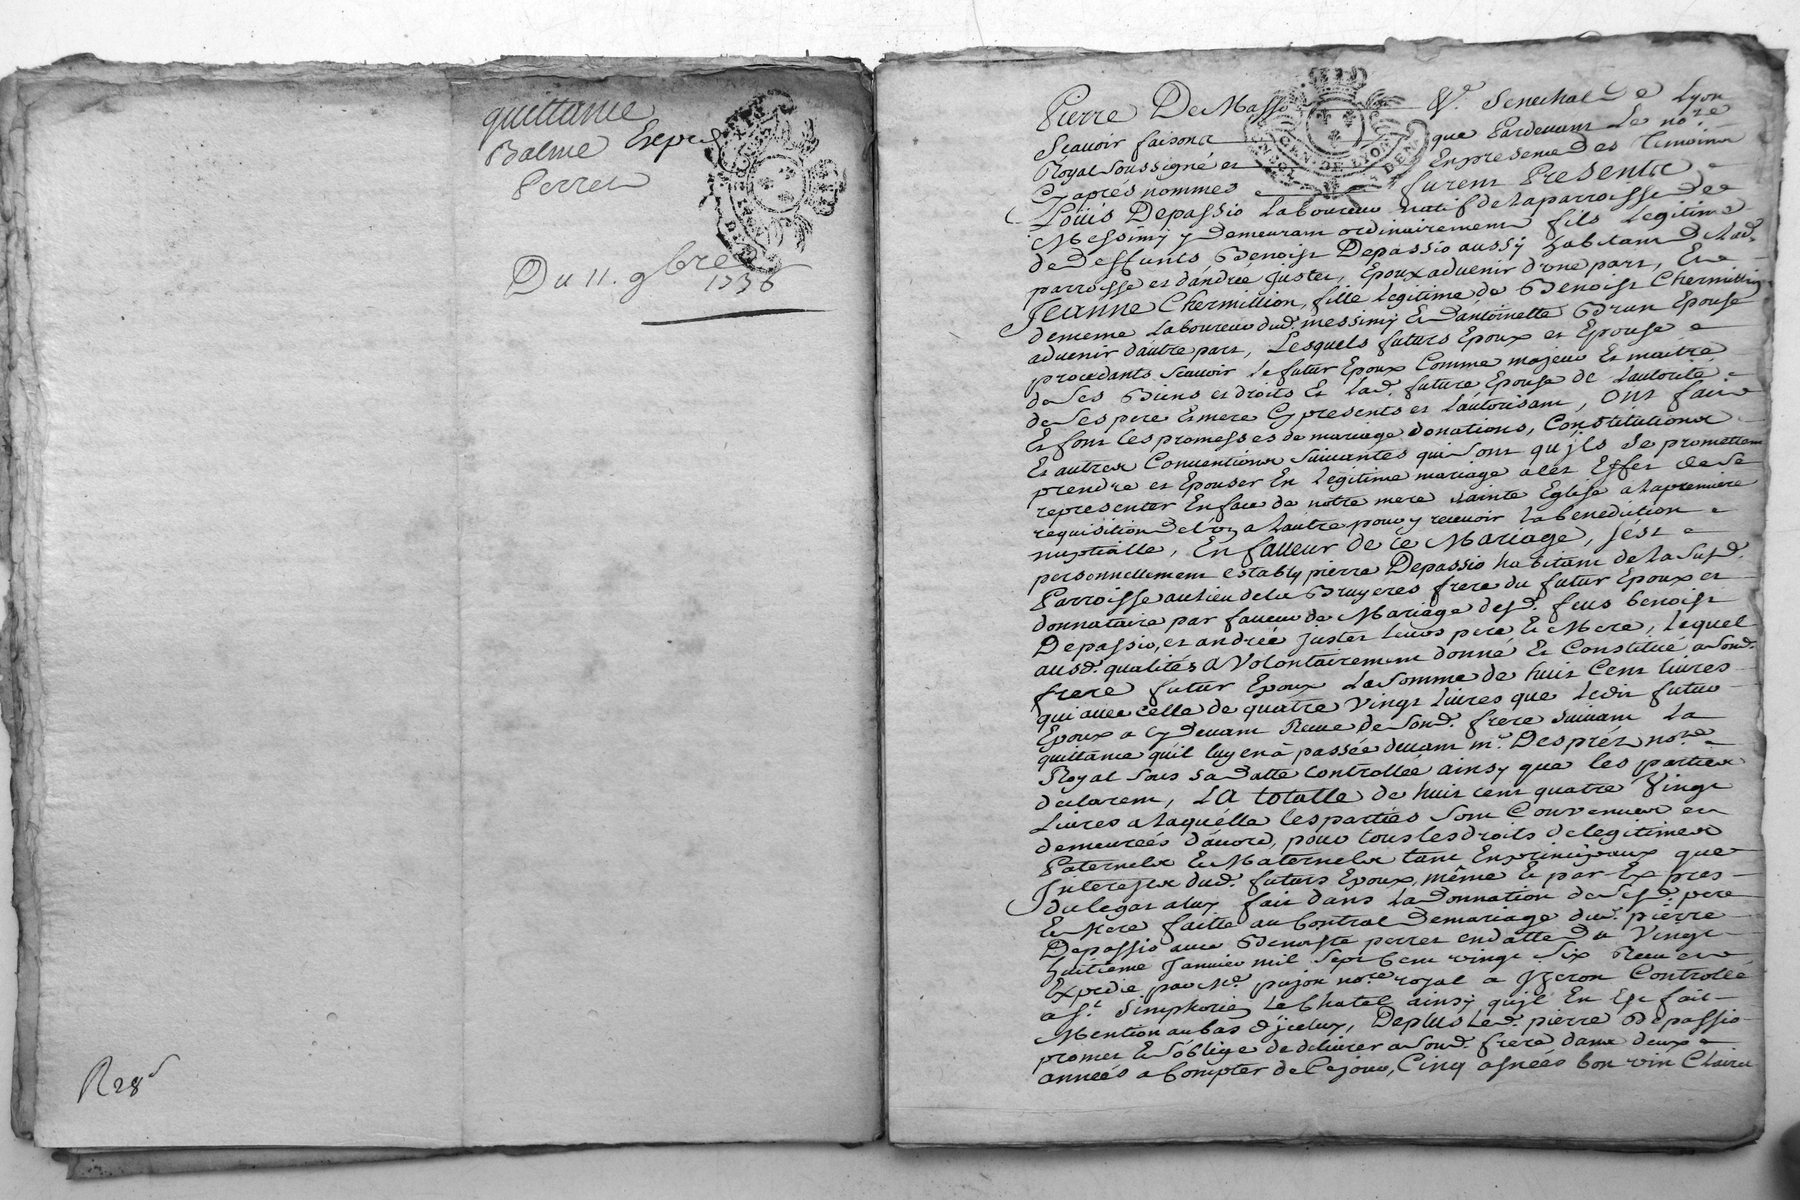 quittance
Balme Exped
Perret
Du 11. 9bre
1736
R 28s
GEN. DE LYON
Pierre De Masso &c. Senechal de Lyon
Scavoir faisons que Pardevant Le nore
Royal soussigné et En presence des Temoins
Cy aprés nommés furent Presents
Loüis Depassio Laboureur natif de la parroisse de
Messimy y demeurant ordinairement fils Legitime
de deffunts Benoist Depassio aussy habitant de lad.
parroisse et d'andrée Juster, Epoux advenir d'une part, Et
Jeanne Chermillion, fille Legitime de Benoist Chermillion
de meme Laboureur dud. messimy Et d'antoinette Brun Epouse
advenir d'autre part, Lesquels futurs Epoux et Epouse
procedants Scavoir le futur Epoux Comme majeur Et maitre
de ses Biens et droits Et Lad. future Epouse de L'autorité
de ses pere Et mere Cy presents et L'autorisant, Ont fait
Et font les promesses de mariage donations, Constitutions
Et autres Conventions Suivantes qui sont qu'ils Se promettent
prendre et Epouser En Legitime mariage a cet Effet de Se
representer En face de notre mere Sainte Eglise a la premiere
requisition de L'un a L'autre pour y recevoir La benediction
nuptialle, En faveur de ce Mariage, s'est
personnellement estably pierre Depassio habitant de la Susd.
Parroisse au lieu de la Bruyeres frere du futur Epoux et
donnataire par faveur de Mariage desd. feus benoist
Depassio, et andrée juster leurs pere Et Mere, Lequel
ausd. qualités a Volontairement donné Et Constitué a Sond.
frere futur Epoux La Somme de huit Cent livres
qui avec celle de quatre Vingt livres que led. futur
Epoux a cy devant Receu de Sond. frere suivant La
quittance qu'il luy en a passée devant me. Despréz nore.
Royal sous sa datte controllée ainsy que les parties
declarent, La totalle de huit cent quatre Vingt
Livres a laquelle les parties Sont Convenues et
demeurées d'acord, pour tous les droits de legitimes
Paternels Et Maternels tant En principaux que
Interests dud. futurs Epoux, même Et par Expres
du legat a luy fait dans La donnation de Sesd. pere
Et Mere faitte au Contrat de mariage dud. pierre
Depassio avec Benoiste perret en datte du Vingt
huitieme Janvier mil Sept Cent vingt Six Receu et
Expedié par Me. pujon nore. royal a Yzeron Controllé
a St. Simphorien Le Chatel ainsy qu'il En Est fait
Mention au bas d'jceluy, De plus Led. pierre Depassio
promet Et s'oblige de delivrer a Sond. frere dans deux
années a Compter de Ce jour, Cinq asnées bon vin Clairet